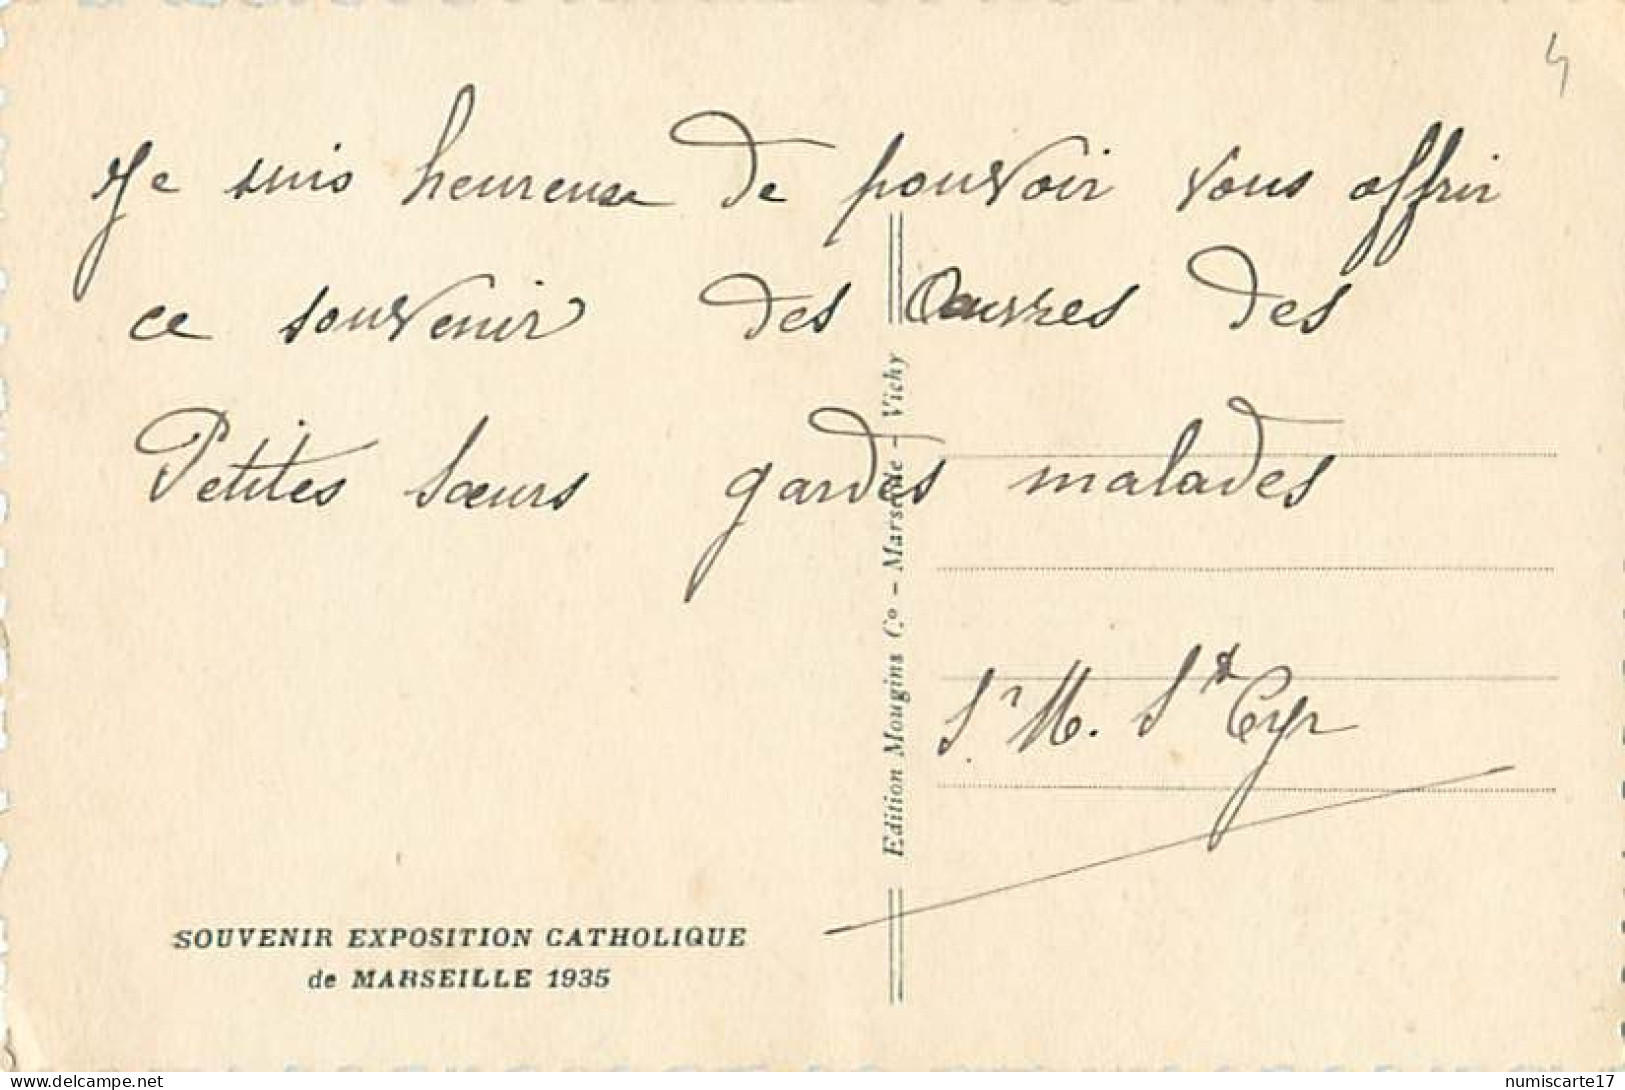 Je suis heureuse de pouvoir vous offrir
ce souvenir des Oeuvres des
Petites Sœurs gardes malades
Sr M. St Cyr
Edition Mougins Co - Marseille - Vichy
SOUVENIR EXPOSITION CATHOLIQUE
de MARSEILLE 1935
numiscarte17